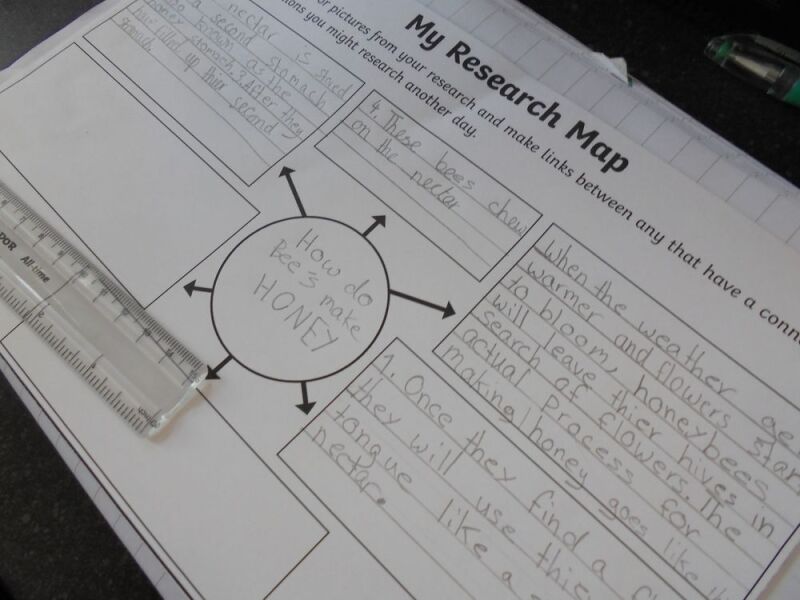 My Research Map
or pictures from your research and make links between any that have a
you might research another day.
nectar is
a second stomach
known as the
honey stomach. 3. After they
filled up thier second
stomach
4. These bees chew
on the nectar
How do
Bee's make
HONEY
When the weather
warmer and flowers
to bloom, honeybees
will leave thier hives in
search of flowers. The
actual Process for
making honey goes like
1. Once they find a
they will use
tongue like a
nectar.
DOR All-time